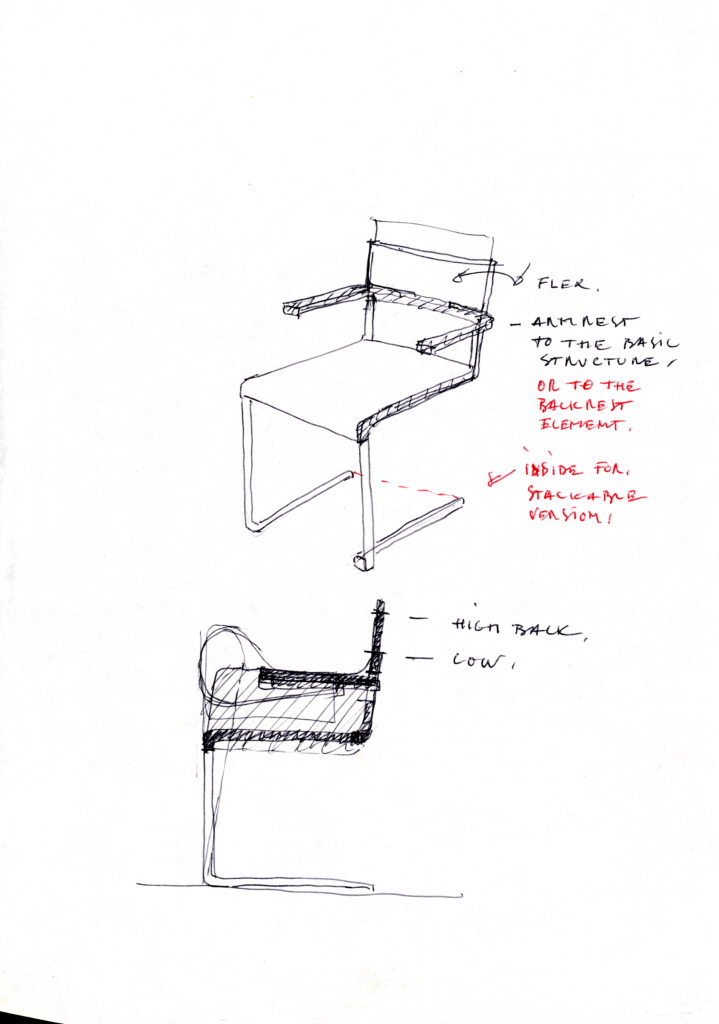 FLEX.
– ARMREST
TO THE BASIC
STRUCTURE,
OR TO THE
BACKREST
ELEMENT.
INSIDE FOR.
STACKABLE
VERSION!
– HIGH BACK.
– LOW.